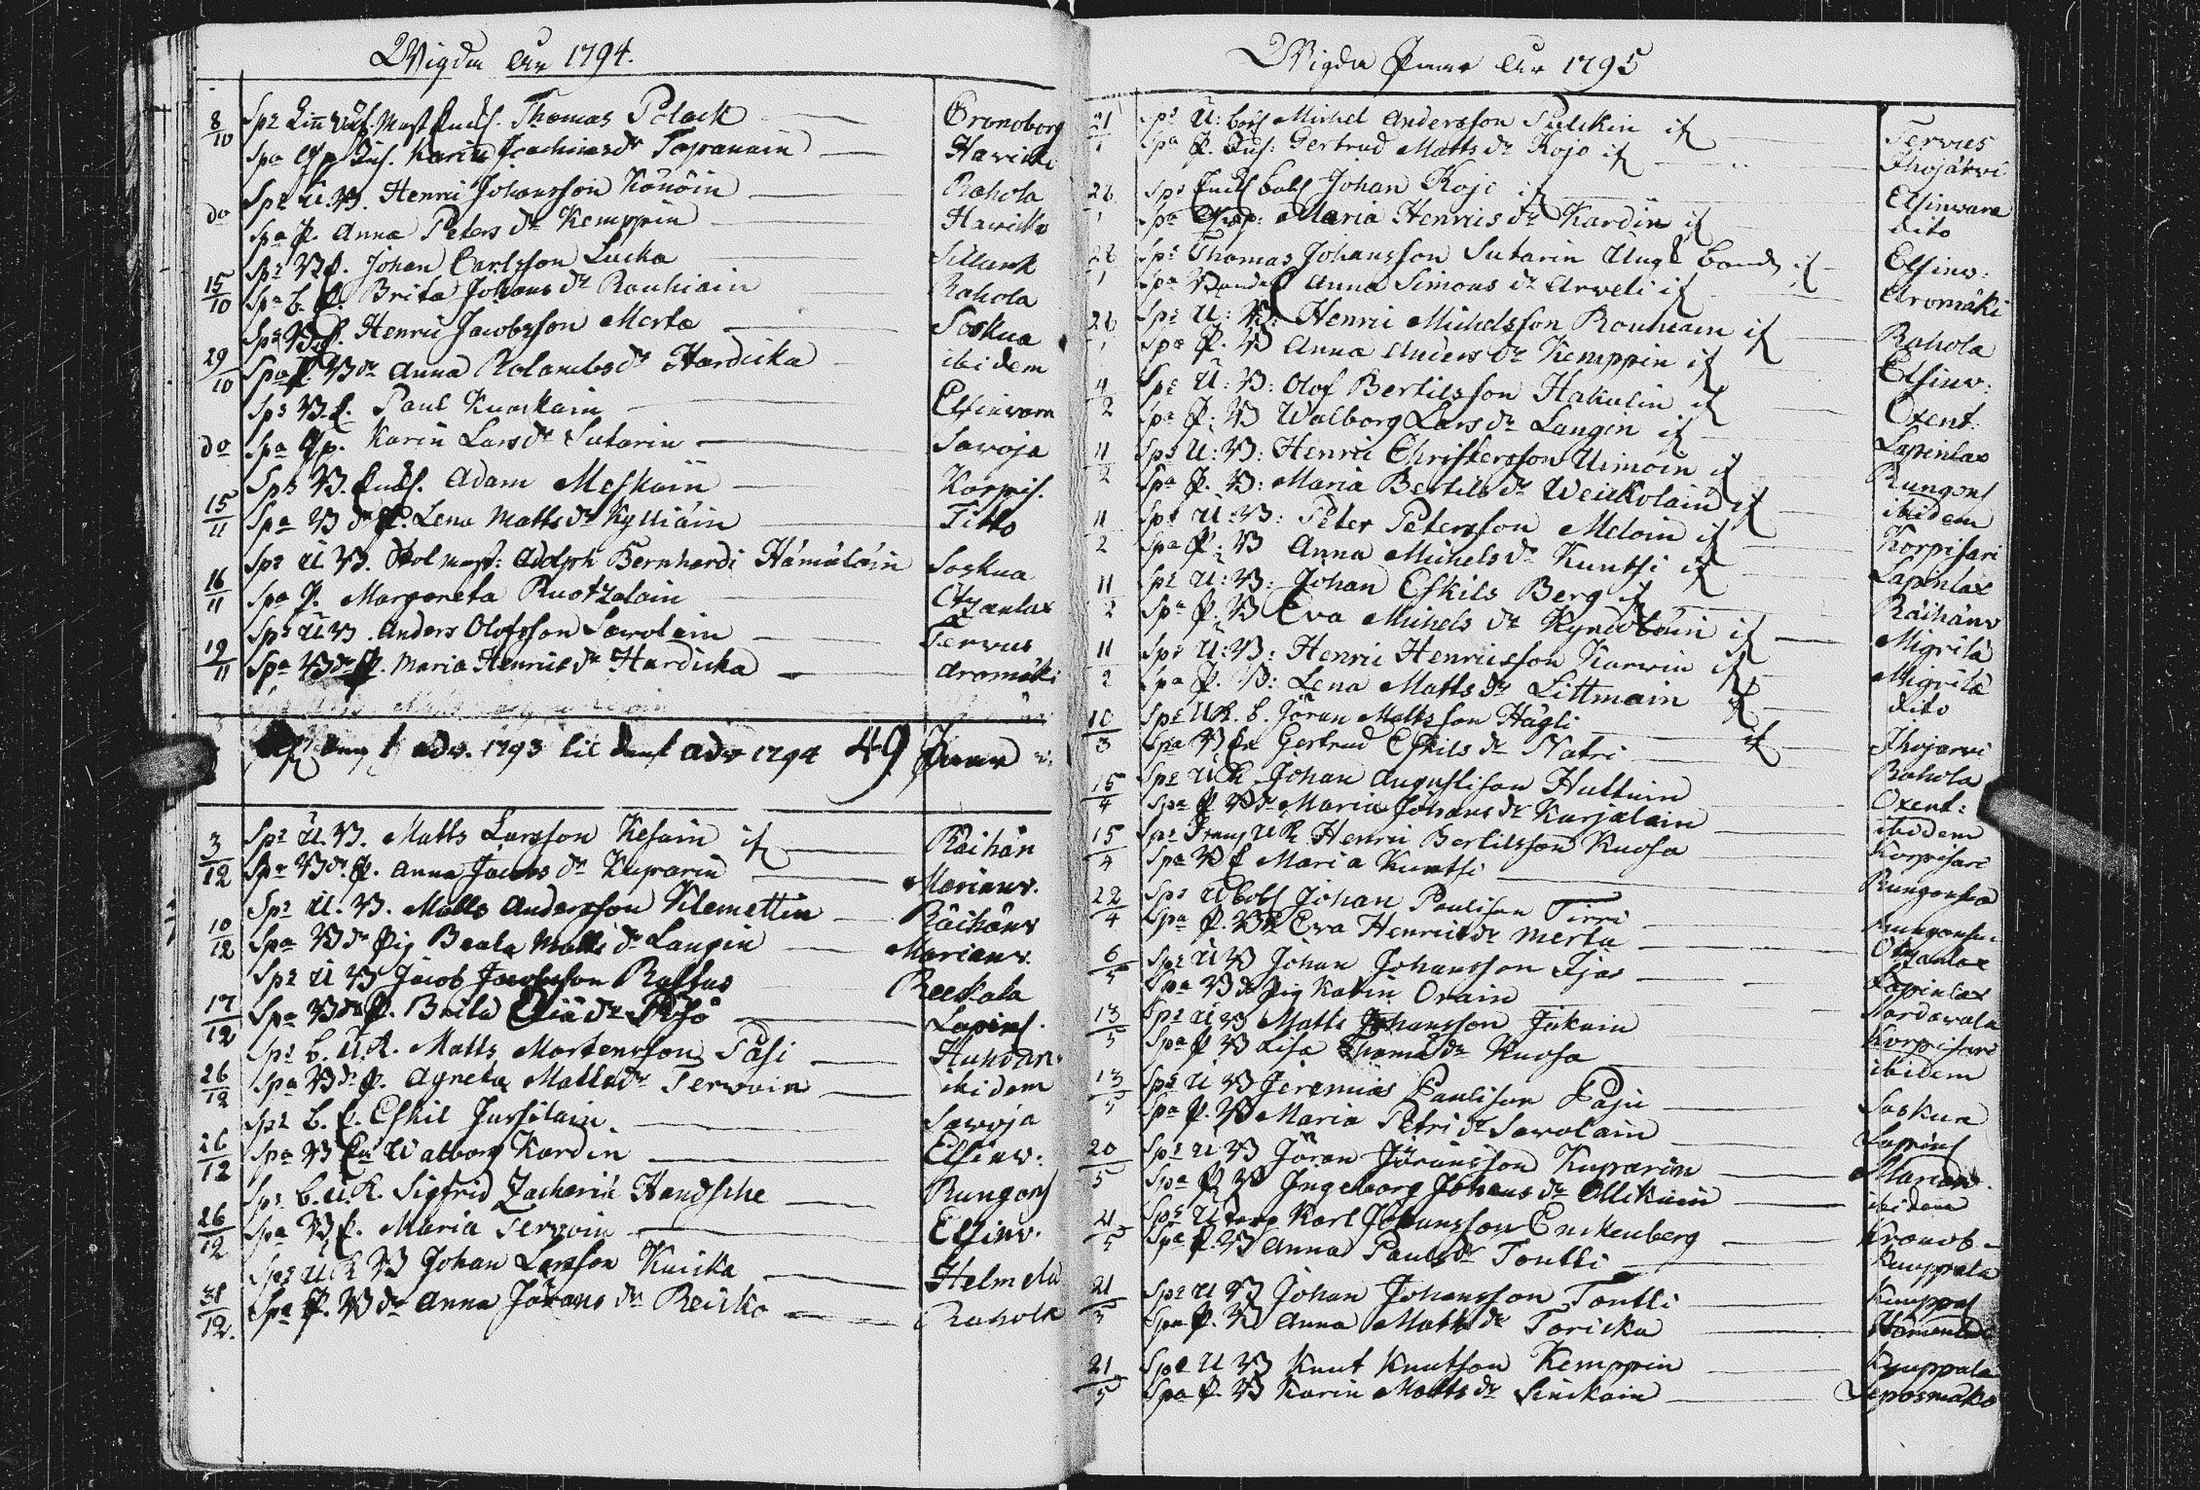 Wigda År 1794.
8/10 Sps Thomas Polack Cronoborg
Spa Karin Joachims dr Toppanain Hawicko
do Sps U. B. Henric Johansson Könöin Rahola
Spa P. Anna Peters dr Kemppin Hawicko
15/10 Sps Johan Carlsson Lucka
Spa Brita Johans dr Rouhiain Rahola
29/10 Sps Henric Jacobsson Merta Soskua
Spa Anna Rolambs dr Hardicka ibidem
do Sps Paul Kuoskain Elsinvara
Spa Karin Lars dr Sutarin Savoja
15/11 Sps B. Adam Meskain Korpis.
Spa B dr P. Lena Matts dr Kylliäin Ditto
16/11 Sps U B. Skolmast: Adolph Bernhardi Hämäläin Soskua
Spa P. Margareta Ruotzalain Otzanlax
19/11 Sps U B. Anders Olofsson Sawolain Tervus
Spa B dr P. Maria Henrics dr Hardicka Aromäki
1 adv. 1793 til 1 adv 1794 49 Paar
3/12 Sps U. B. Matts Larsson Kesäin if Räihän
Spa B dr. P. Anna Jacobs dr Kuparin Marianv.
10/12 Sps U. B. Matts Andersson Kilemettin Räihänv
Spa B dr Pig Beata Matts dr Langin Marianv.
17/12 Sps U B Jacob Jacobsson Rastas Reekala
Spa B dr P. Brita Lapins.
26/12 Sps b. U. K. Matts Mortensson Pasi Huhvan
Spa B dr P. Agneta Matts dr Terwoin ibidem
26/12 Sps b. Eskil Jussilain Savoja
Spa B Walborg Kardin Elsinv.
26/12 Sps b. U. K. Sigfrid Zacharia Handsche Rungons
Spa B. Maria Terwoin Elsinv.
31/12. Sps U K B Johan Larsson Kuicka Helmelä
Spa P. B dr Anna Jörans dr Reicko Rahola
Wigda Paar År 1795
21/1 Sps U: Michel Andersson Pulckin if Tervus
Spa P. Gertrud Matts dr Kojo if Ihojärvi
26/1 Sps Johan Kojo if Elsinvara
Spa Maria Henrics dr Kardin if dito
26/1 Sps Thomas Johansson Sutarin Ung Bonde if Elsinv:
Spa Anna Simons dr Arweli if Aromäki
26/1 Sps U: B: Henric Michelsson Rouhiain if Rahola
Spa P. B Anna Anders dr Kemppin if Elsinv.
4/2 Sps U: B: Olof Bertilsson Hakulin if Oxent.
Spa P: B Walborg Lars dr Langin if Lapinlax
11/2 Sps U: B: Henric Christersson Uimoin if Rungons
Spa P. B: Maria Bertils dr Weickolain if ibidem
11/2 Sps U: B: Peter Petersson Meloin if Korpisari
Spa P: B Anna Michels dr Kuntsi if Lapinlax
11/2 Sps U: B: Johan Eskils Berg if Räihänv
Spa P. B Eva Michels dr if Migrilä
11/2 Sps U: B: Henric Henricsson Karwin if Migrilä
Spa P. B: Lena Matts dr Littmain if dito
10/3 Sps U K. b. Jöran Mattsson Hägli if Ihojärvi
Spa Gertrud Eskils dr Natri if Rahola
15/4 Sps U K Johan Augustison Huttuin Oxent:
Spa P. B dr Maria Johans dr Karjalain ibidem
15/4 Sps U K Henric Bertilsson Kuosa Korpisari
Spa Maria Kuntsi Rungonsa
22/4 Sps Johan Paulison Tirri
Spa P. B Eva Henrics dr Merta Otzanlax
6/5 Sps U B Johan Johansson Ijas Lapinlax
Spa B dr Pig Karin Orain Sordavala
13/5 Sps U B Matts Johansson Jakain Korpisari
Spa P B Lisa Thomas dr Kuosa ibidem
13/5 Sps U B Jeremias Paulison Paju Soskua
Spa P. B Maria Petri dr Sawolain Lapins
20/5 Sps U B Jöran Jöransson Kuparin Marianv.
Spa P B Ingeborg Johans dr Ollikain ibidem
21/5 Sps U Karl Johansson Enckenberg Kronob.
Spa P. B Anna Pauls dr Tontti Kuppala
21/5 Sps U B Johan Johansson Tontti Kuppal
Spa P. B Anna Matts dr Toricka
21/5 Sps U B Knut Knutson Kemppin Kuppala
Spa P. B Karin Matts dr Sinckain Leposmäki